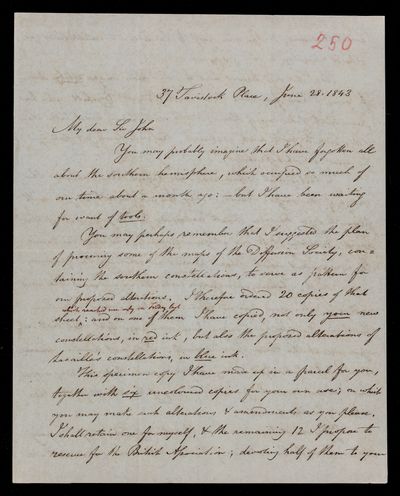 250
37 Tavistock Place, June 28. 1843
My dear Sir John
You may probably imagine that I have forgotten all
about the southern hemisphere, which occupied so much of
our time about a month ago: – but I have been waiting
for want of tools.
You may perhaps remember that I suggested the plan
of procuring some of the maps of the Diffusion Society, con=
taining the southern constellations, to serve as pattern for
our proposed alterations. I therefore ordered 20 copies of that
which reached me only on Friday last
sheet: and on one of them I have copied, not only your new
constellations, in red ink, but also the proposed alterations of
Lacaille's constellations, in blue ink.
This specimen copy I have made up in a parcel for you,
together with six uncoloured copies for your own use; on which
you may make such alterations & amendments as you please.
I shall retain one for myself, & the remaining 12 I propose to
reserve for the British Association; devoting half of them to your